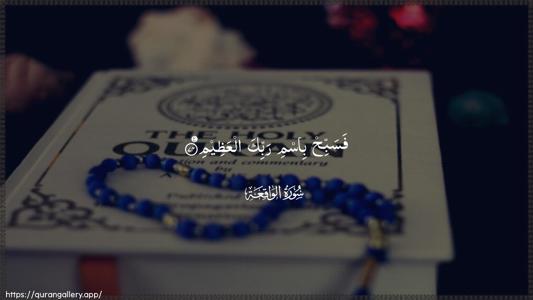 فَسَبِّحْ بِاسْمِ رَبِّكَ الْعَظِيْمِ
سُورَةُ الوَاقِعَة
THE HOLY
and commentary
by
https://qurangallery.app/